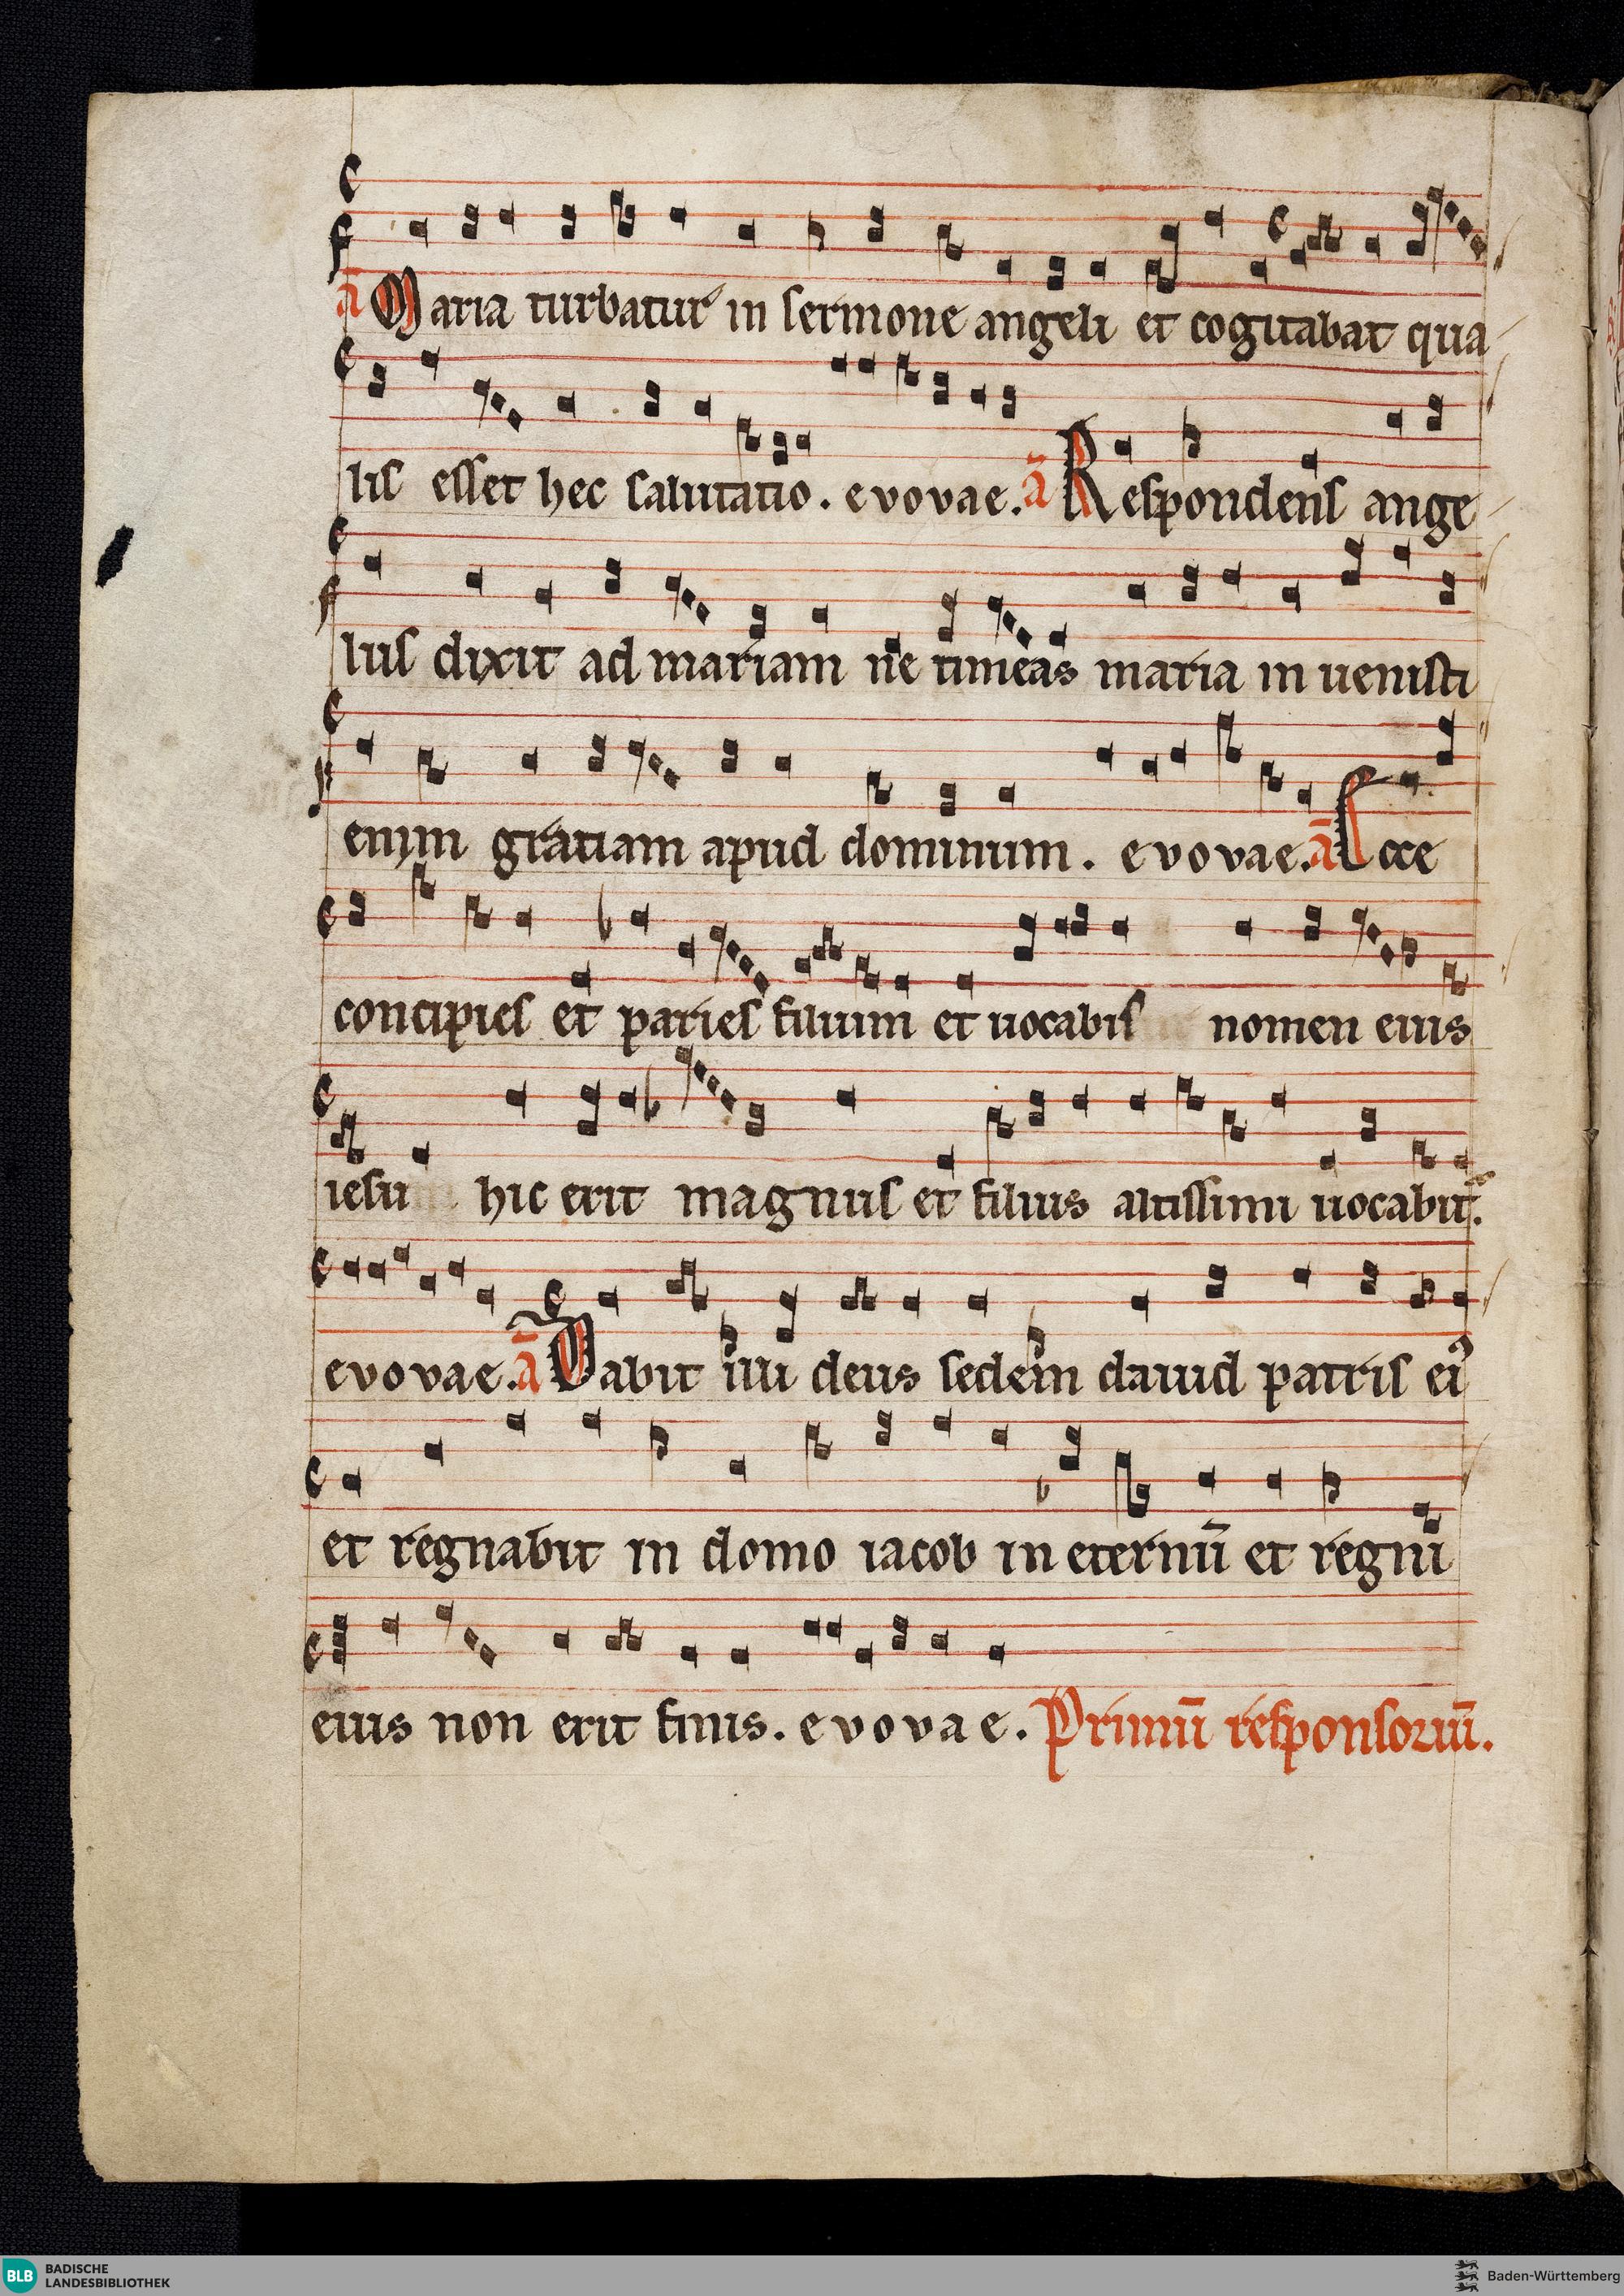 ā Maria turbatur in sermone angeli et cogitabat qua
lis esset hec salutatio. evovae. ā Respondens ange
lus dixit ad mariam ne timeas maria in uenisti
enym gratiam apud dominum. evovae. ā Ecce
concipies et paries filium et uocabis nomen eius
iesu hic erit magnus et filius altissimi uocabit᷑.
evovae. ā Dabit illi deus sedem dauid patris eiꝰ
et regnabit in domo iacob in eternū et regni
eius non erit finis. evovae. Primū responsoriū.
BLB BADISCHE LANDESBIBLIOTHEK
Baden-Württemberg